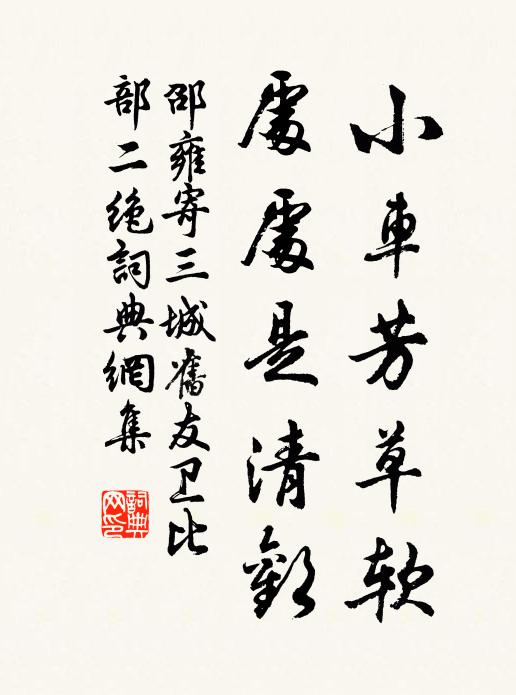 小車芳草軟
處處是清歡
邵雍寄三城舊友卫比
部二絕詞典網集
詞典
网印